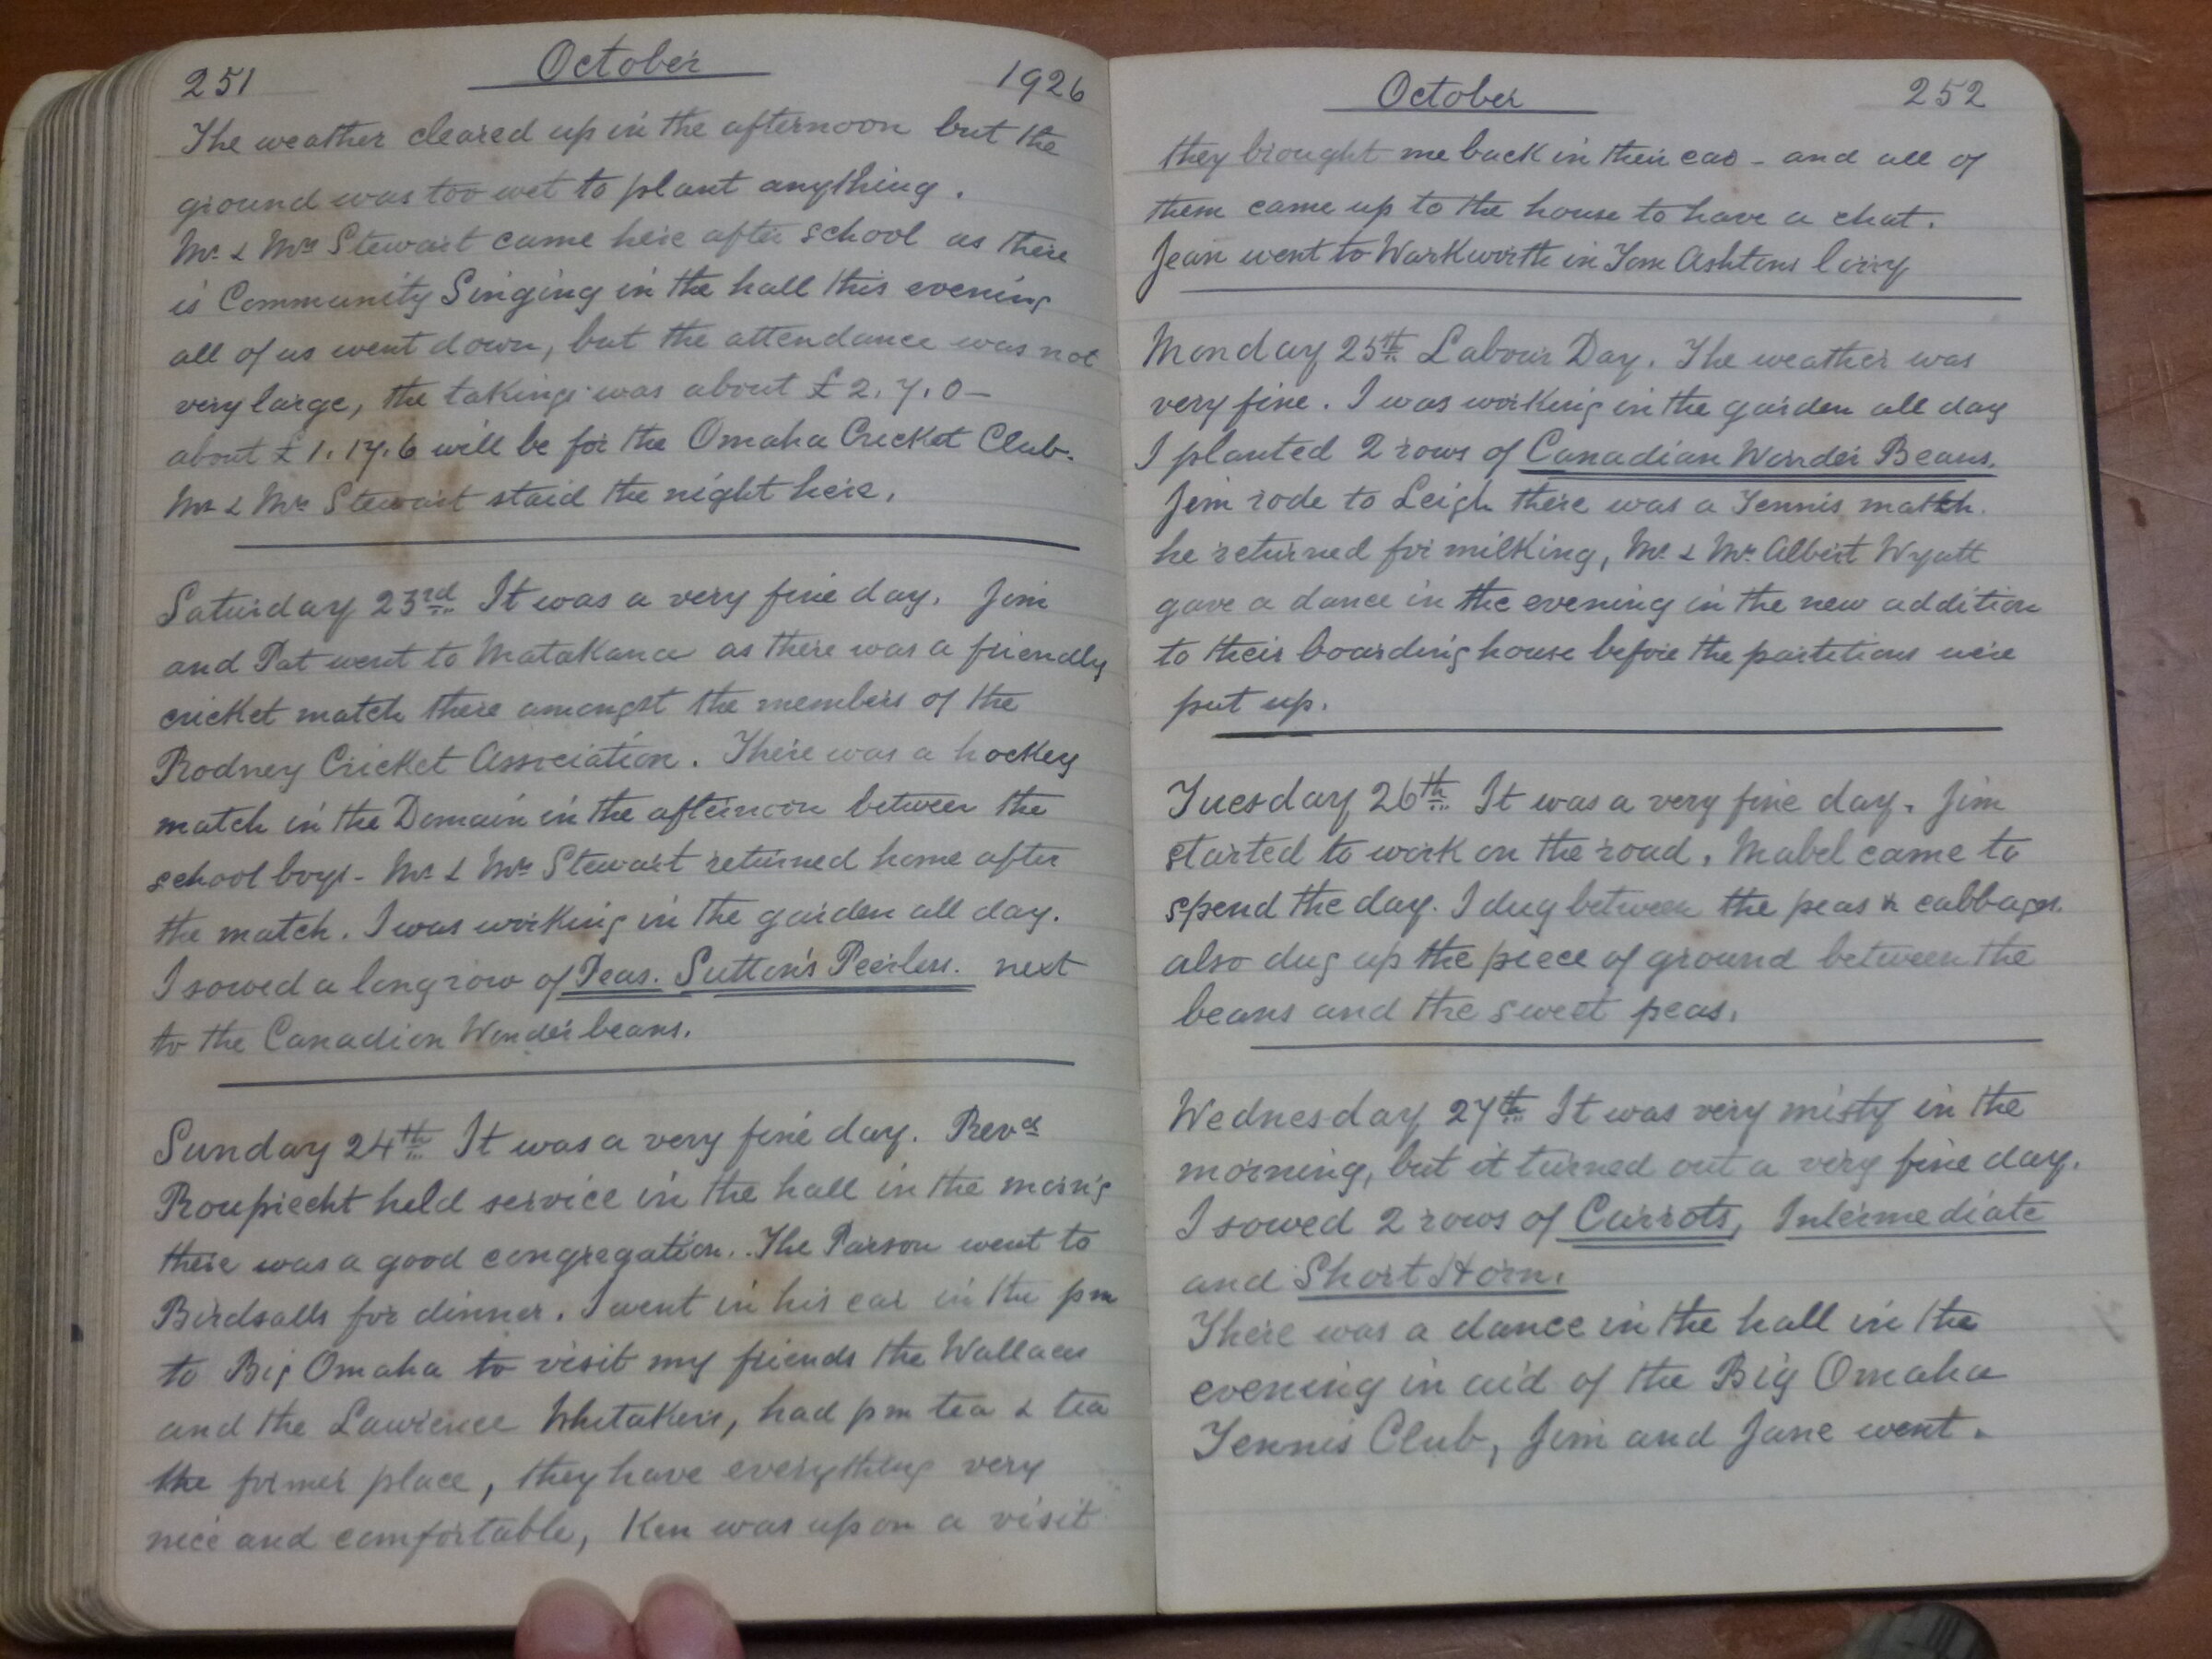 251 October 1926
The weather cleared up in the afternoon but the
ground was too wet to plant anything.
Mr & Mrs Stewart came here after school as there
is Community Singing in the hall this evening
all of us went down, but the attendance was not
very large, the takings was about £2.7.0-
about £1.17.6 will be for the Omaha Cricket Club.
Mr & Mrs Stewart staid the night here.
Saturday 23rd It was a very fine day. Jim
and Pat went to Matakana as there was a friendly
cricket match there amongst the members of the
Rodney Cricket Association. There was a hockey
match in the Domain in the afternoon between the
school boys - Mr & Mrs Stewart returned home after
the match. I was working in the garden all day.
I sowed a long row of Peas. Sutton's Peerless. next
to the Canadian Wonder beans.
Sunday 24th It was a very fine day. Revd
held service in the hall in the morn'g
there was a good congregation. The Parson went to
Birdsalls for dinner. I went in his car in the pm
to Big Omaha to visit my friends the Wallaces
and the Lawrence Whitakers, had pm tea & tea
the former place, they have everything very
nice and comfortable, Ken was up on a visit
October 252
they brought me back in their car - and all of
them came up to the house to have a chat.
Jean went to Warkworth in Tom Ashtons lorry
Monday 25th Labour Day. The weather was
very fine. I was working in the garden all day
I planted 2 rows of Canadian Wonder Beans.
Jim rode to Leigh there was a Tennis match.
he returned for milking, Mr & Mrs Albert Wyatt
gave a dance in the evening in the new addition
to their boarding house before the partitions were
put up.
Tuesday 26th It was a very fine day. Jim
started to work on the road. Mabel came to
spend the day. I dug between the peas & cabbages.
also dug up the piece of ground between the
beans and the sweet peas.
Wednesday 27th It was very misty in the
morning, but it turned out a very fine day.
I sowed 2 rows of Carrots, Intermediate
and Short Horn.
There was a dance in the hall in the
evening in aid of the Big Omaha
Tennis Club, Jim and Jane went.